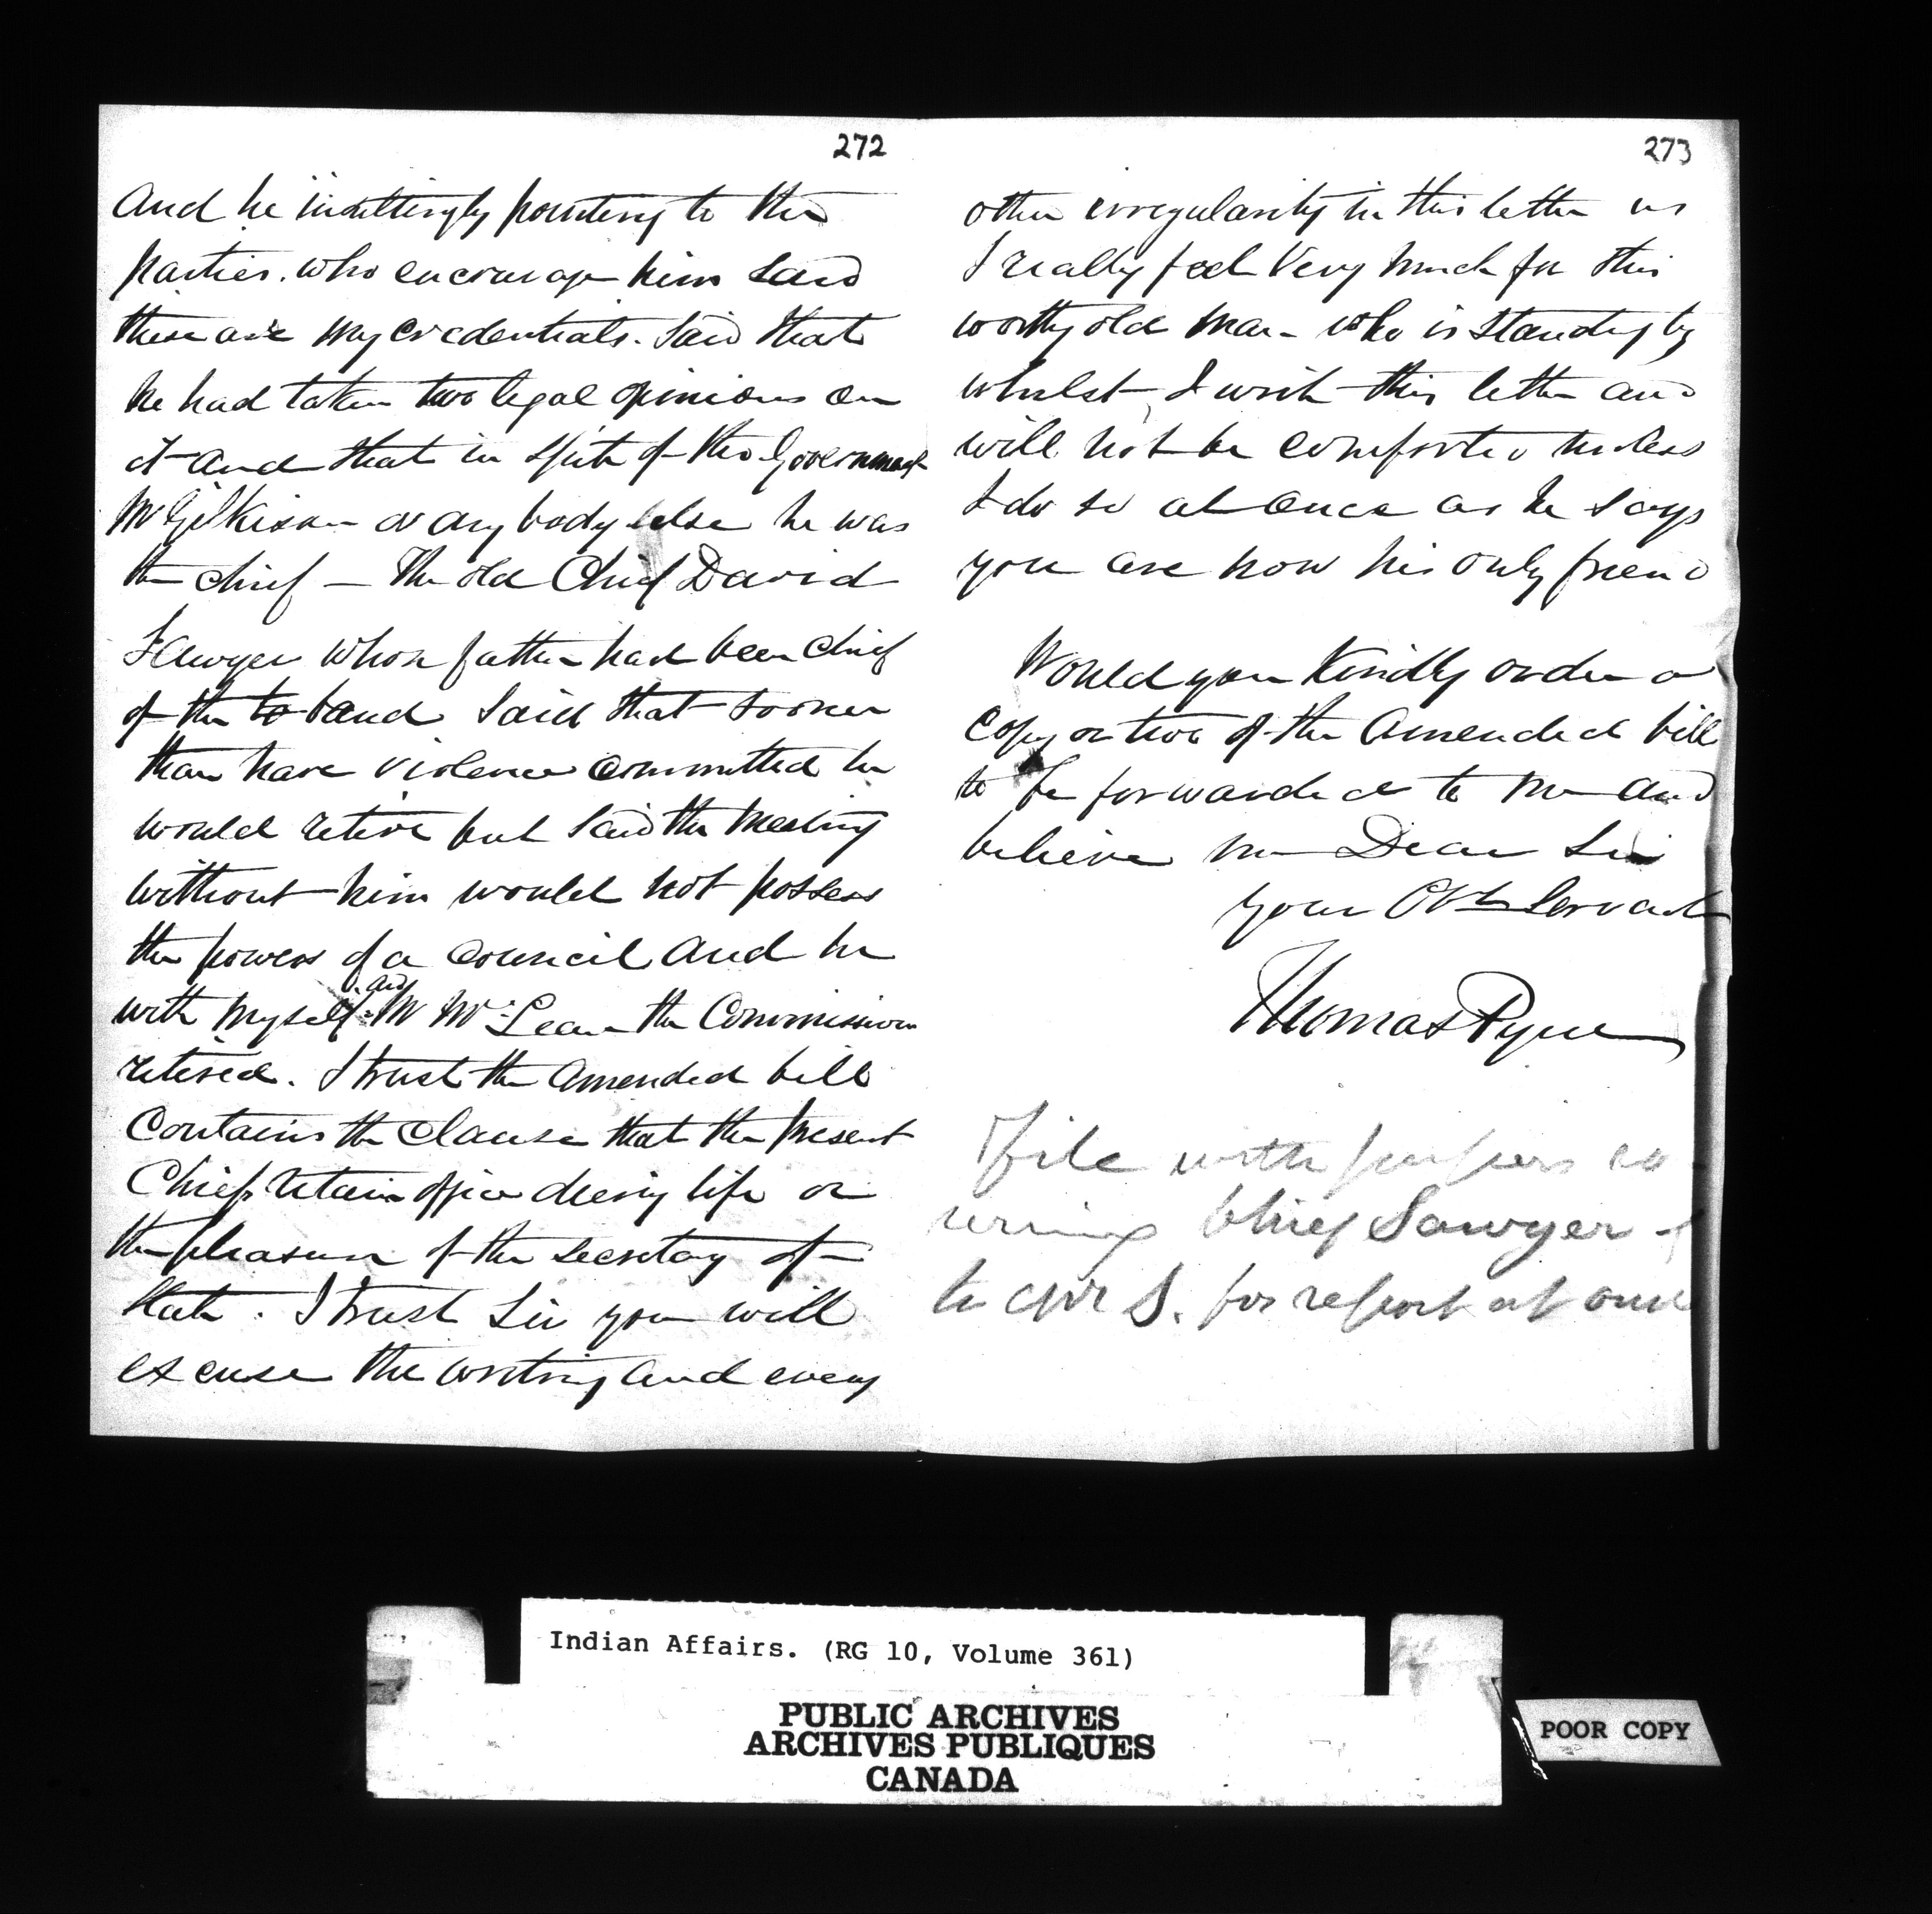 272
And he insultingly pointing to the
parties who encourage him said
these are my credentials. Said that
he had taken two legal opinions on
it and that in spite of the Government
Mr Gilkison or any body else he was
the chief — The old Chief David
Sawyer whose father had been chief
of the to band said that sooner
than have violence committed he
would retire but said the meeting
without him would not possess
the powers of a council and he
with myself and Mr McLean the Commissioner
retired. I trust the amended bill
contains the clause that the present
Chiefs retain office during life or
the pleasure of the Secretary of
State. I trust Sir you will
excuse the writing and every
273
other irregularity in this letter as
I really feel very much for this
worthy old man who is standing by
whilst I write this letter and
will not be comforted unless
I do so at once as he says
you are now his only friend
Would you kindly order a
copy or two of the amended bill
to be forwarded to me and
believe me Dear Sir
your Obt Servant
Thomas Pyne
File with papers
Chief Sawyer
for report at once
Indian Affairs. (RG 10, Volume 361)
PUBLIC ARCHIVES
ARCHIVES PUBLIQUES
CANADA
POOR COPY